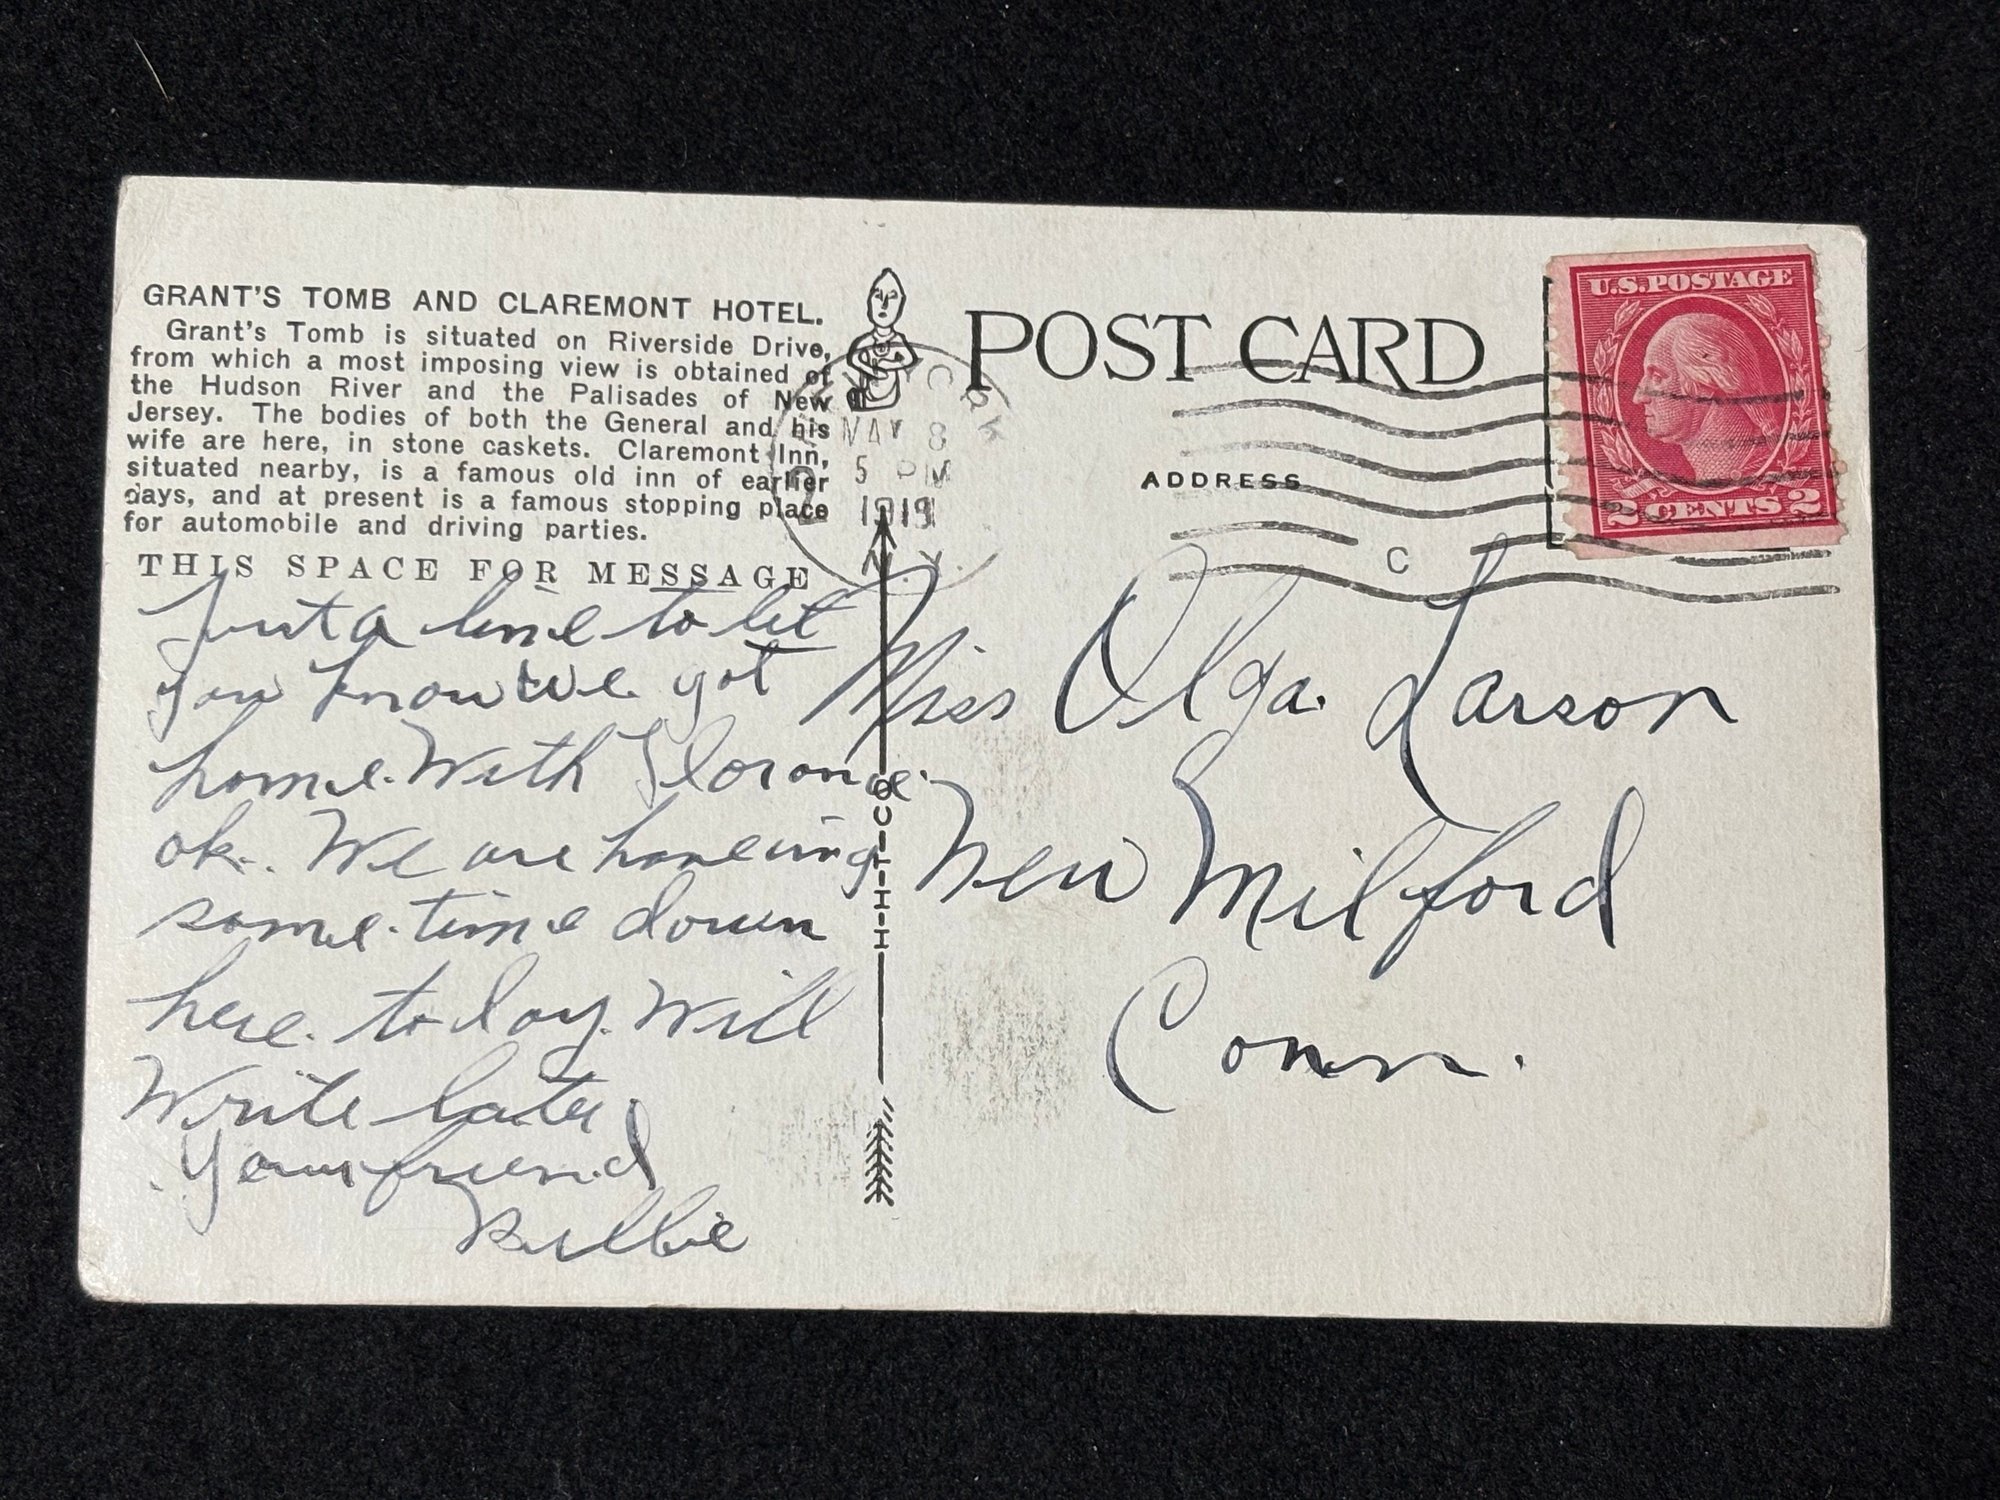 GRANT'S TOMB AND CLAREMONT HOTEL.
Grant's Tomb is situated on Riverside Drive,
from which a most imposing view is obtained of
the Hudson River and the Palisades of New
Jersey. The bodies of both the General and his
wife are here, in stone caskets. Claremont Inn,
situated nearby, is a famous old inn of earlier
days, and at present is a famous stopping place
for automobile and driving parties.
THIS SPACE FOR MESSAGE
Just a line to let
you know we got
home. With Florance.
ok. We are haveing
some. time down
here. to day. Will
Write later.
Your friend
Billie
POST CARD
ADDRESS
MAY 8
5 PM
1919
N.Y.
C
U.S. POSTAGE
2 CENTS 2
Miss Olga. Larson
New Milford
Conn.